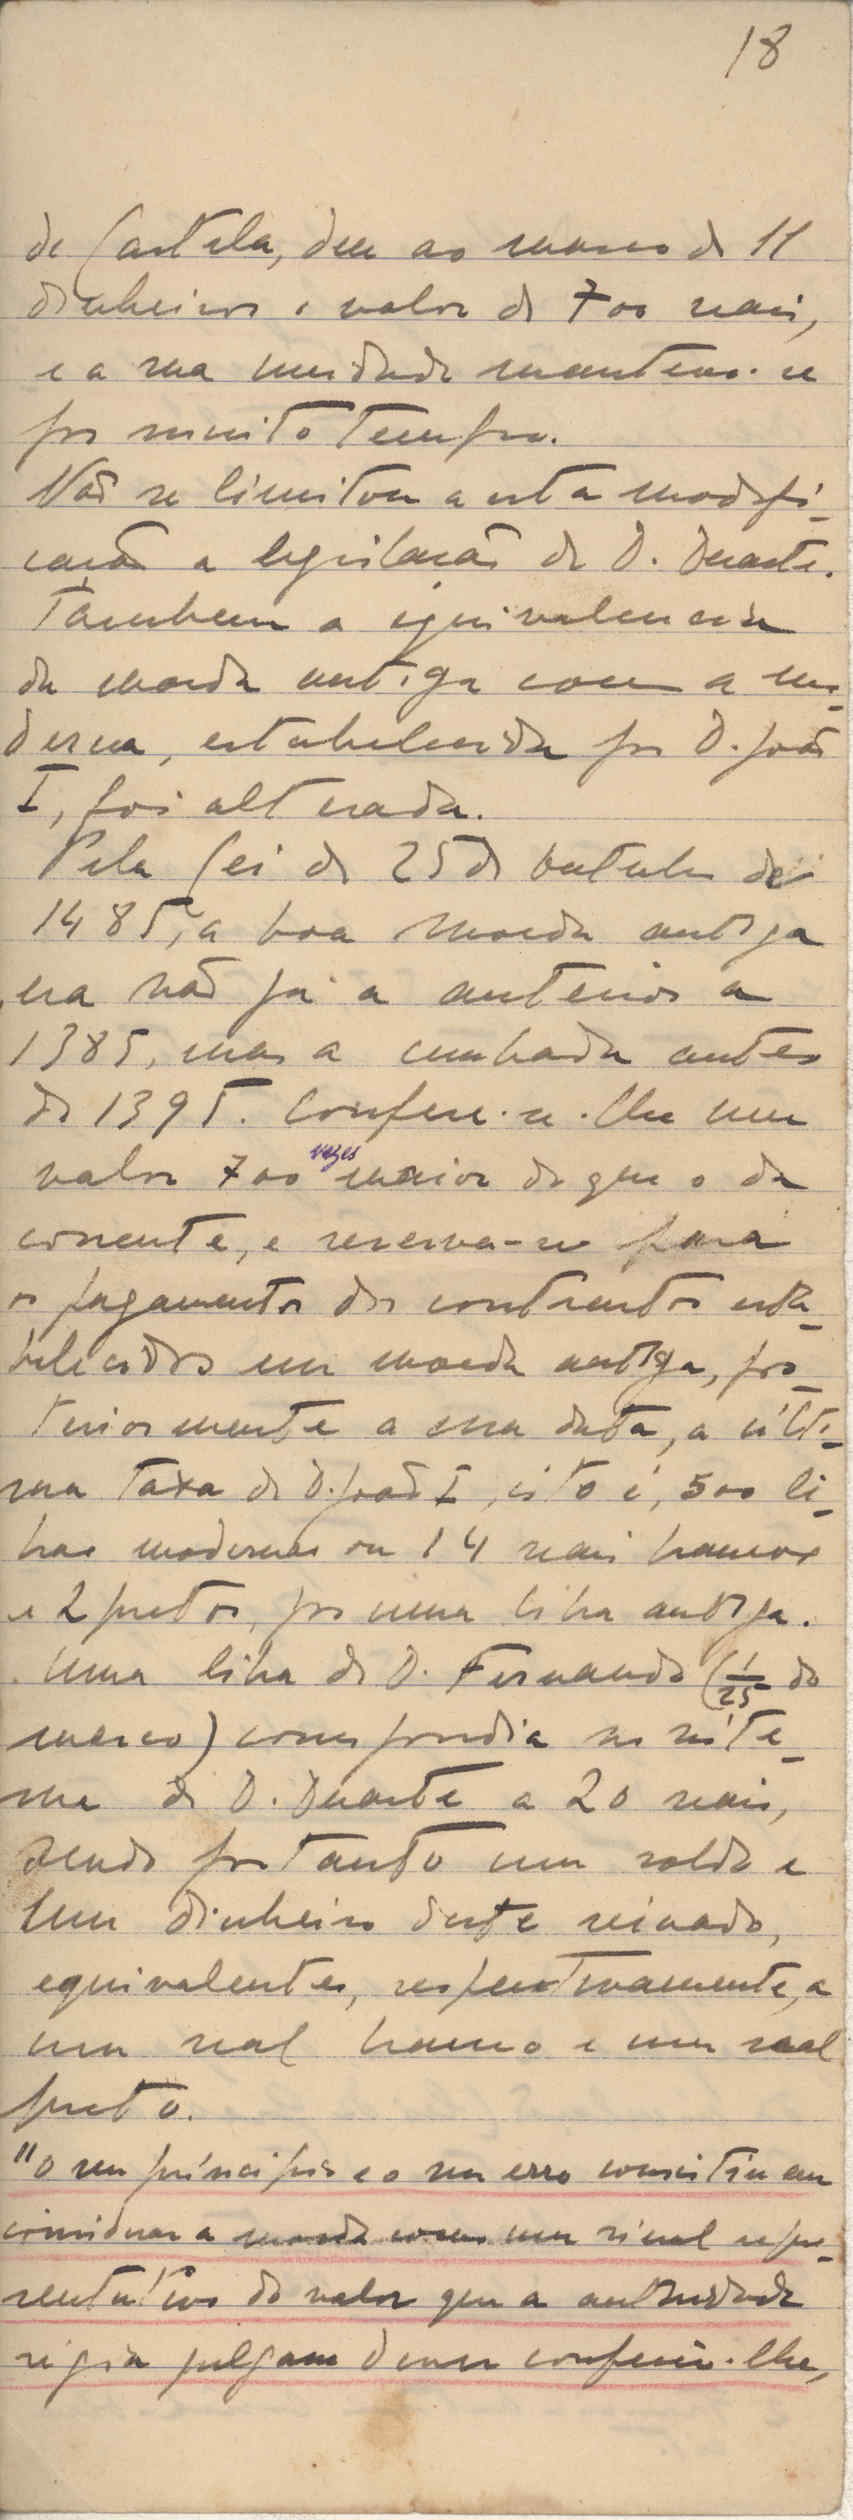 18
de Castela, deu ao marco de 11
dinheiros o valor de 700 reais,
e a sua unidade manteve-se
por muito tempo.
Não se limitou a esta modifi-
cação a legislação de D. Duarte.
Tambem a equivalencia
da moeda antiga com a mo-
derna, estabelecida por D. João
I, foi alterada.
Pela lei de 25 de outubro de
1435, a boa moeda antiga
era não já a anterior a
1385, mas a cunhada antes
de 1395. Confere-se-lhe um
valor 700 vezes maior do que o da
corrente, e reserva-se para
os pagamentos dos contractos esta-
belecidos em moeda antiga, pos-
teriormente a essa data, a ulti-
ma taxa de D. João I, isto é, 500 li-
bras modernas ou 14 reais brancos
e 2 pretos, por uma libra antiga.
Uma libra de D. Fernando (1/25 do
marco) correspondia no siste-
ma de D. Duarte a 20 reais,
sendo portanto um soldo e
um dinheiro deste reinado,
equivalentes, respectivamente, a
um real branco e um real
preto.
"O seu principio e o seu erro consistiu em
considerar a moeda como um sinal repre-
sentativo do valor que a autoridade
régia julgava dever conferir-lhe,